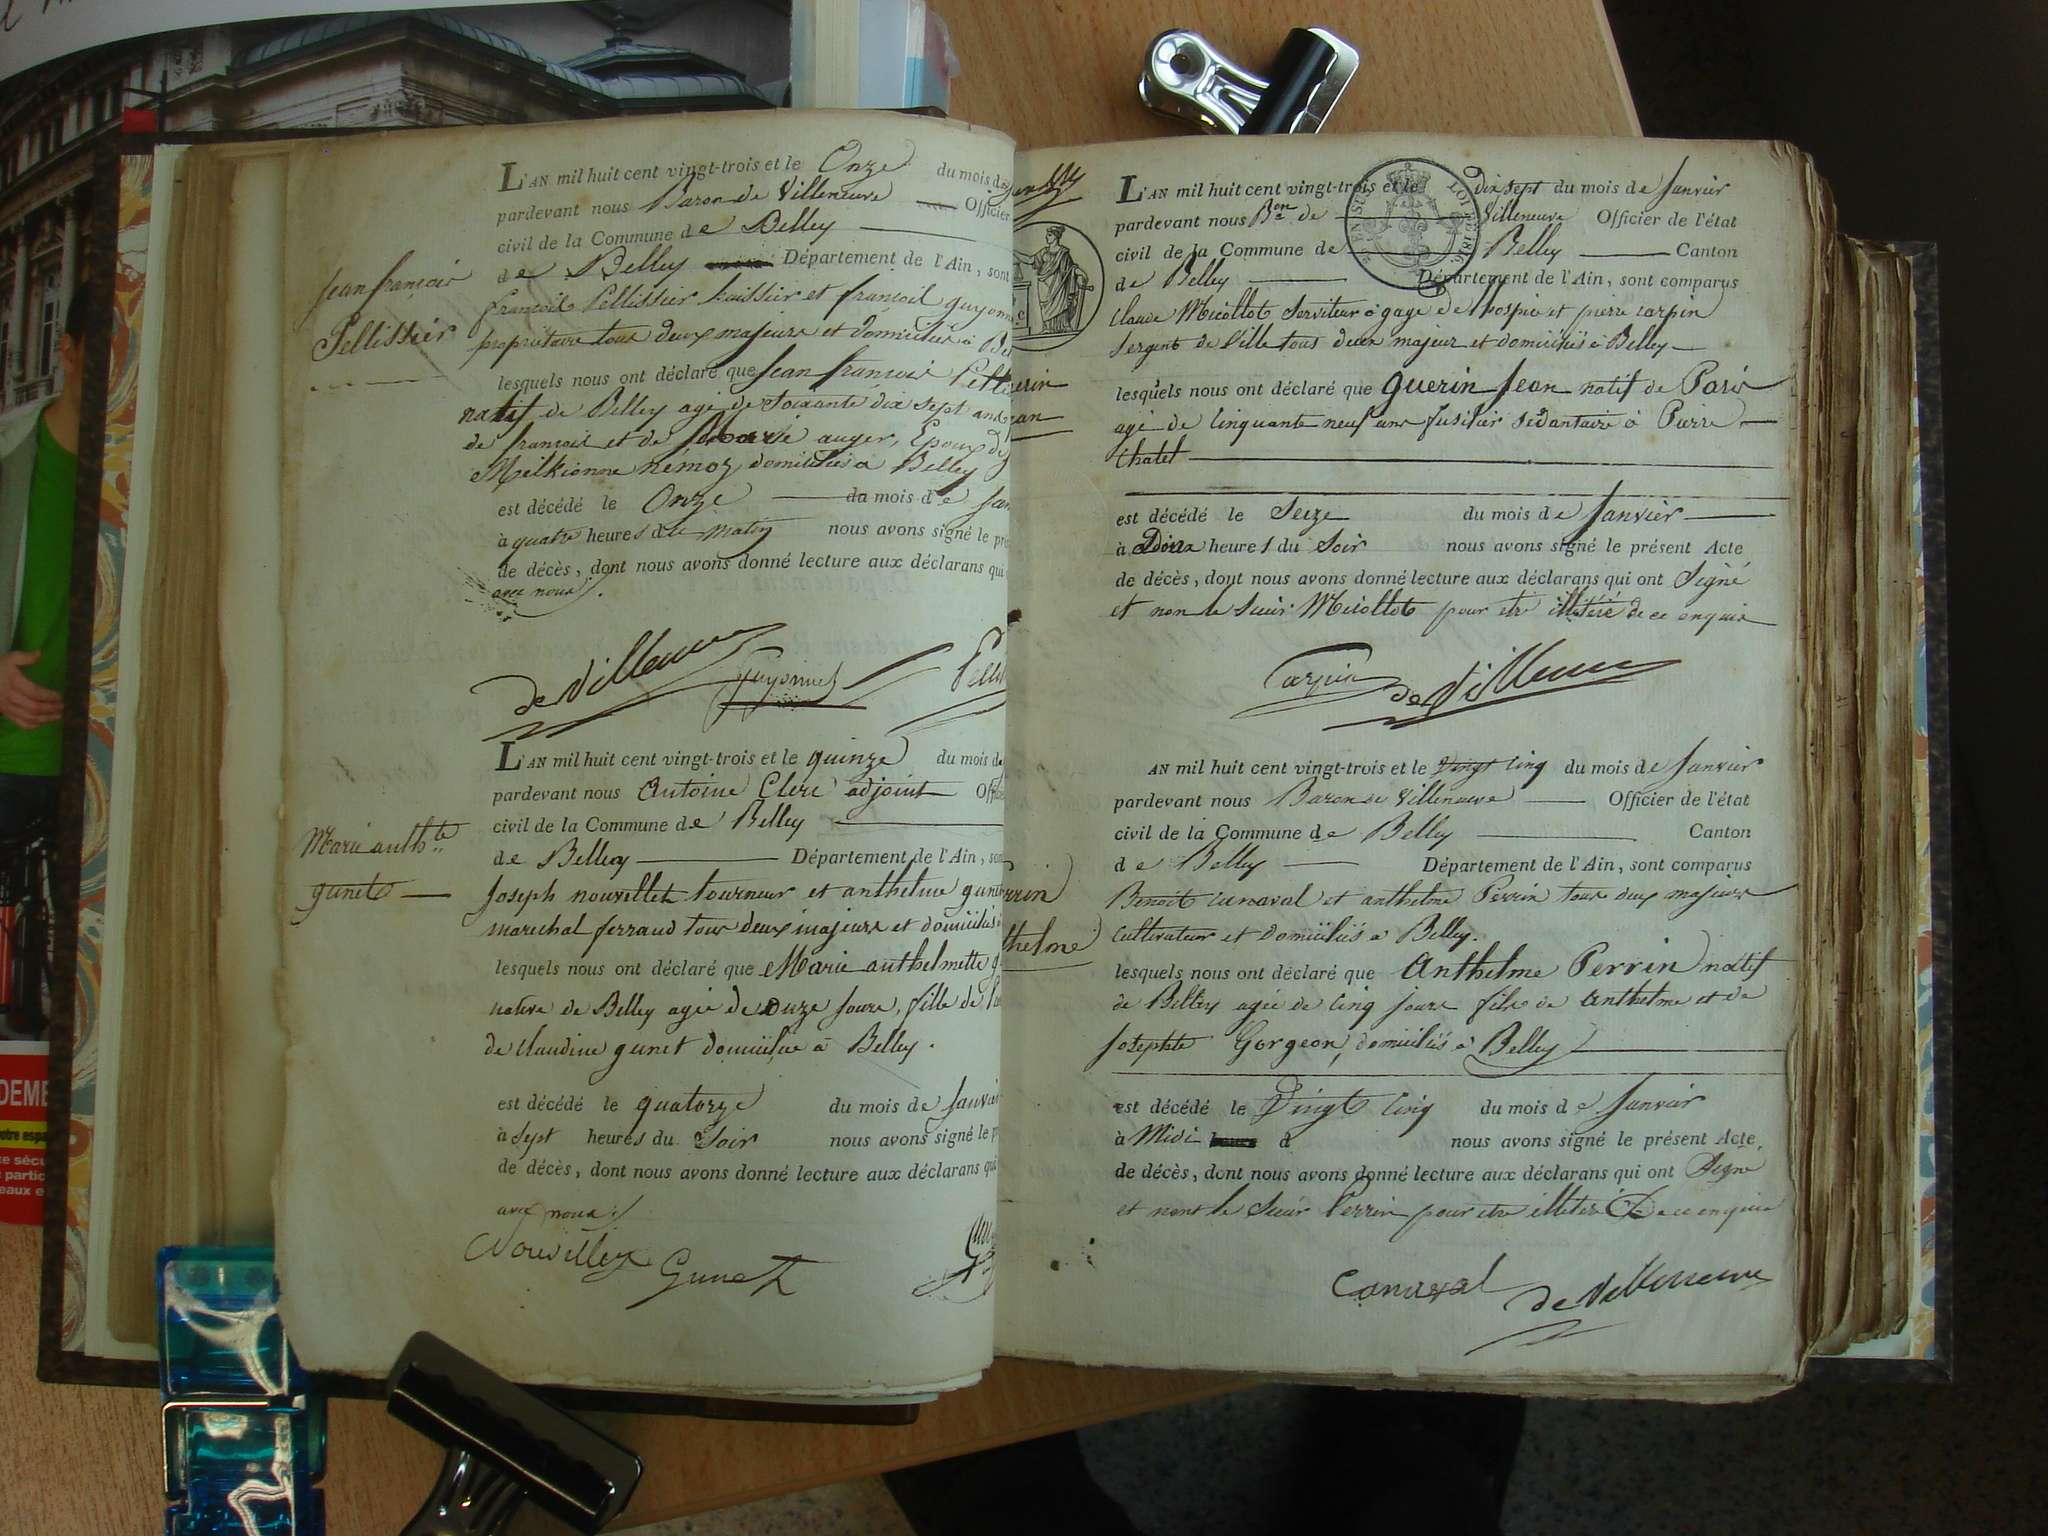 L'AN mil huit cent vingt-trois et le Onze du mois de
pardevant nous Baron de Villeneuve Officier
civil de la Commune de Belley
de Belley Département de l'Ain, sont
Jean françois
Pellissier
françois Pellissier huissier et françois guyonne
propriétaire tous deux majeurs et domiciliés à Be
lesquels nous ont déclaré que Jean françois Pell
natif de Belley agé de soixante dix sept ans
de françois et de Marie auger, Epoux de
Melkionne némoz domiciliés a Belley
est décédé le Onze du mois de Jan
à quatre heures du matin nous avons signé le pré
de décès, dont nous avons donné lecture aux déclarans qui
avec nous.
de Villeneuve Guyonnet Pell
L'AN mil huit cent vingt-trois et le quinze du mois de
pardevant nous Antoine Clerc adjoint Offi
civil de la Commune de Belley
de Belley Département de l'Ain, son
Marie anth.te
gunet
Joseph nouvellet tourneur et anthelme gune
marechal ferraud tous deux majeurs et domiciliés
lesquels nous ont déclaré que Marie anthelmette g
native de Belley agée de onze jours, fille de
de claudine gunet domiciliée à Belley.
est décédé le quatorze du mois de Janvier
à sept heures du soir nous avons signé le p
de décès, dont nous avons donné lecture aux déclarans qui
avec nous.
Nouvellet Gunet
L'AN mil huit cent vingt-trois et le dix sept du mois de Janvier
pardevant nous Bon de Villeneuve Officier de l'état
civil de la Commune de Belley Canton
de Belley Département de l'Ain, sont comparus
Claude Micollot Serviteur à gage de l'hospice et pierre carpin
Sergent de Ville tous deux majeur et domiciliés à Belley
erin
ean
lesquels nous ont déclaré que Guerin Jean natif de Paris
agé de cinquante neuf ans fusilier sédantaire à Pierre
Chatel
est décédé le Seize du mois de Janvier
à heures du Soir nous avons signé le présent Acte
de décès, dont nous avons donné lecture aux déclarans qui ont Signé
et non le Sieur Micollot pour etre illitéré de ce enquis
Carpin de Villeneuve
AN mil huit cent vingt-trois et le vingt cinq du mois de Janvier
pardevant nous Baron de Villeneuve Officier de l'état
civil de la Commune de Belley Canton
de Belley Département de l'Ain, sont comparus
rrin
thelme
Benoit canaval et anthelme Perrin tous deux majeurs
cultivateur et domiciliés a Belley.
lesquels nous ont déclaré que Anthelme Perrin natif
de Belley agée de cinq jours fils de anthelme et de
Josephte Gorgeon, domiciliés a Belley
est décédé le Vingt cinq du mois de Janvier
à Midi heures d nous avons signé le présent Acte
de décès, dont nous avons donné lecture aux déclarans qui ont Signé
et nont le Sieur Perrin pour etre illitéré De ce enquis
Canaval de Villeneuve